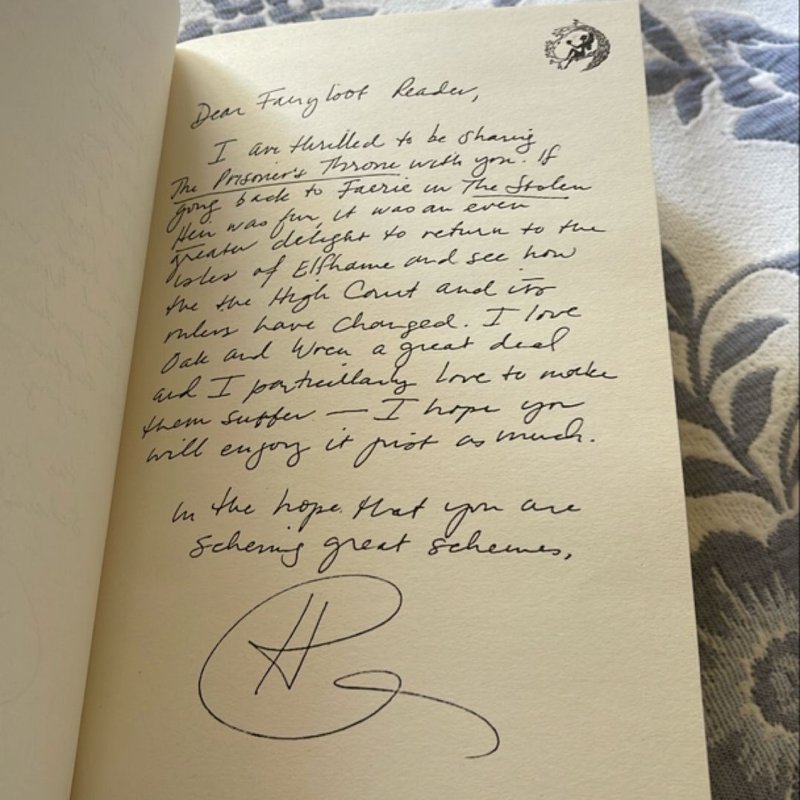 Dear Fairyloot Reader,
I am thrilled to be sharing
The Prisoner's Throne with you. If
going back to Faerie in The Stolen
Heir was fun, it was an even
greater delight to return to the
isles of Elfhame and see how
the the High Court and its
rulers have changed. I love
Oak and Wren a great deal
and I particularly love to make
them suffer — I hope you
will enjoy it just as much.
In the hope that you are
scheming great schemes,